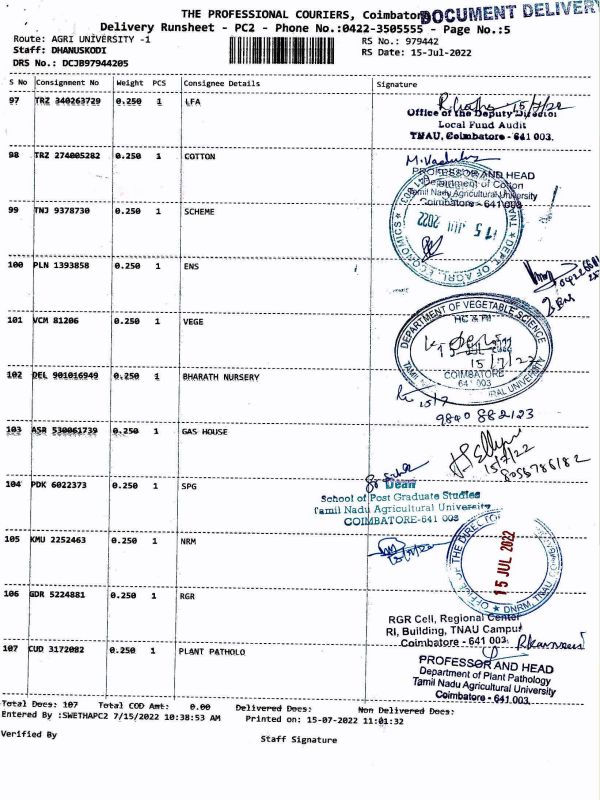 THE PROFESSIONAL COURIERS, Coimbatore
DOCUMENT DELIVERY
Delivery Runsheet - PC2 - Phone No.:0422-3505555 - Page No.:5
Route: AGRI UNIVERSITY -1
RS No.: 979442
Staff: DHANUSKODI
RS Date: 15-Jul-2022
DRS No.: DCJB97944205
S No Consignment No Weight PCS Consignee Details Signature
97 TRZ 340263729 0.250 1 LFA
15/7/22
Office of the Deputy Director
Local Fund Audit
TNAU, Coimbatore - 641 003.
98 TRZ 274005282 0.250 1 COTTON
PROFESSOR AND HEAD
Department of Cotton
Tamil Nadu Agricultural University
Coimbatore - 641 003
99 TNJ 9378730 0.250 1 SCHEME
15 JUL 2022
DEPT. OF AGRL. ECONOMICS
100 PLN 1393858 0.250 1 ENS
101 VCM 81206 0.250 1 VEGE
DEPARTMENT OF VEGETABLE SCIENCE
HC & RI
15/7/22
COIMBATORE
641 003
102 DEL 901016949 0.250 1 BHARATH NURSERY
15/7
9840 882123
103 ASR 530061739 0.250 1 GAS HOUSE
15/7/22
8056786182
104 PDK 6022373 0.250 1 SPG
Dean
School of Post Graduate Studies
Tamil Nadu Agricultural University
COIMBATORE-641 003
105 KMU 2252463 0.250 1 NRM
OFFICE OF THE DIRECTOR
15 JUL 2022
DNRM, TNAU
106 GDR 5224881 0.250 1 RGR
RGR Cell, Regional Center
RI, Building, TNAU Campus
Coimbatore - 641 003.
107 CUD 3172082 0.250 1 PLANT PATHOLO
PROFESSOR AND HEAD
Department of Plant Pathology
Tamil Nadu Agricultural University
Coimbatore - 641 003.
Total Docs: 107 Total COD Amt: 0.00 Delivered Docs: Non Delivered Docs:
Entered By :SWETHAPC2 7/15/2022 10:38:53 AM Printed on: 15-07-2022 11:01:32
Verified By
Staff Signature